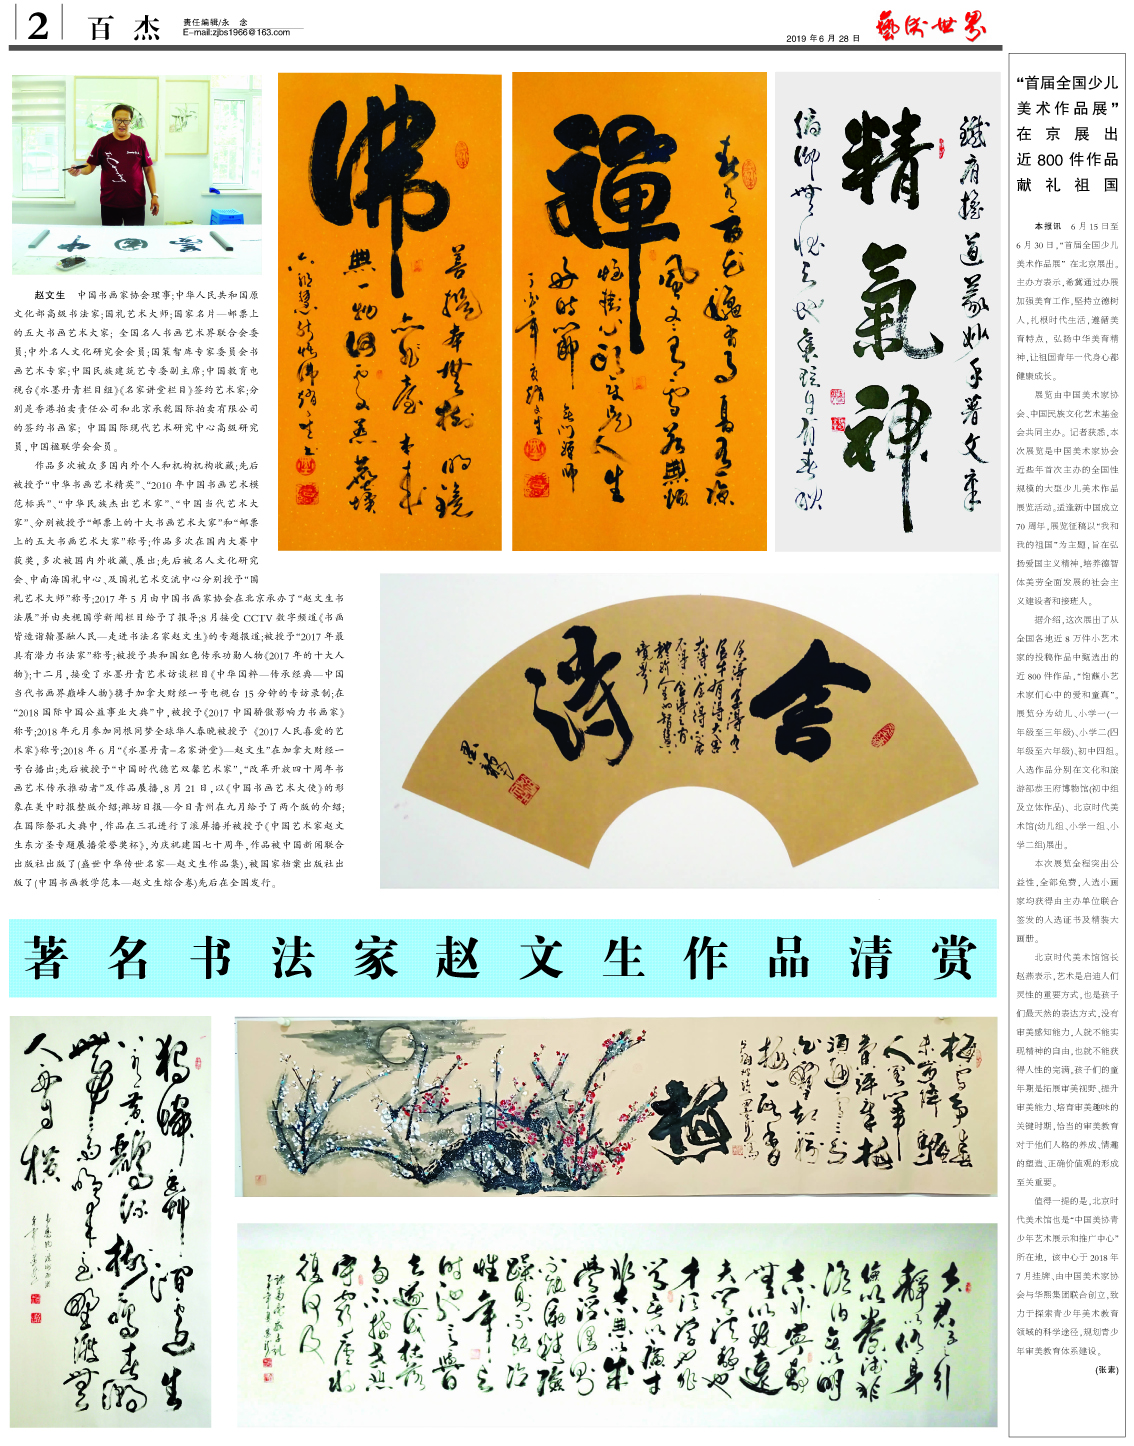 2 百杰
责任编辑/永 念
E-mail:zjbs1966@163.com
2019 年 6 月 28 日
藝術世界
佛
菩提本無樹 明鏡
亦非臺 本來
無一物 何處惹塵埃
禪
春有百花秋有月 夏有凉
風冬有雪 若無煩
惱掛心頭 便是人生
好時節
精氣神
鐵肩擔道義 妙手著文章
舍得
赵文生 中国书画家协会理事;中华人民共和国原
文化部高级书法家;国礼艺术大师;国家名片—邮票上
的五大书画艺术大家; 全国名人书画艺术界联合会委
员;中外名人文化研究会会员;国策智库专家委员会书
画艺术专家;中国民族建筑艺专委副主席;中国教育电
视台《水墨丹青栏目组》《名家讲堂栏目》签约艺术家;分
别是香港拍卖责任公司和北京承乾国际拍卖有限公司
的签约书画家; 中国国际现代艺术研究中心高级研究
员,中国楹联学会会员。
作品多次被众多国内外个人和机构机构收藏;先后
被授予“中华书画艺术精英”、“2010 年中国书画艺术模
范标兵”、“中华民族杰出艺术家”、“中国当代艺术大
家”、分别被授予“邮票上的十大书画艺术大家”和“邮票
上的五大书画艺术大家”称号;作品多次在国内大赛中
获奖,多次被国内外收藏、展出;先后被名人文化研究
会、中南海国礼中心、及国礼艺术交流中心分别授予“国
礼艺术大师”称号;2017 年 5 月由中国书画家协会在北京承办了“赵文生书
法展”并由央视国学新闻栏目给予了报导;8 月接受 CCTV 数字频道《书画
皆造诣翰墨融人民—走进书法名家赵文生》的专题报道;被授予“2017 年最
具有潜力书法家”称号;被授予共和国红色传承功勋人物《2017 年的十大人
物》;十二月,接受了水墨丹青艺术访谈栏目《中华国粹—传承经典—中国
当代书画界巅峰人物》携手加拿大财经一号电视台 15 分钟的专访录制;在
“2018 国际中国公益事业大典”中,被授予《2017 中国骄傲影响力书画家》
称号;2018 年元月参加同根同梦全球华人春晚被授予《2017 人民喜爱的艺
术家》称号;2018 年 6 月“《水墨丹青-名家讲堂》—赵文生”在加拿大财经一
号台播出;先后被授予“中国时代德艺双馨艺术家”,“改革开放四十周年书
画艺术传承推动者”及作品展播,8 月 21 日,以《中国书画艺术大使》的形
象在美中时报整版介绍;潍坊日报—今日青州在九月给予了两个版的介绍;
在国际祭孔大典中,作品在三孔进行了滚屏播并被授予《中国艺术家赵文
生东方圣专题展播荣誉奖杯》,为庆祝建国七十周年,作品被中国新闻联合
出版社出版了(盛世中华传世名家—赵文生作品集),被国家档案出版社出
版了(中国书画教学范本—赵文生综合卷)先后在全国发行。
著名书法家赵文生作品清赏
獨憐幽草澗邊生
上有黄鸝深樹鳴 春潮
帶雨晚來急 野渡無
人舟自橫
梅
夫君子之行
靜以修身
儉以養德 非
澹泊無以明
志 非寧靜
無以致遠
“首届全国少儿
美术作品展”
在京展出
近 800 件作品
献礼祖国
本报讯 6 月 15 日至
6 月 30 日,“首届全国少儿
美术作品展” 在北京展出。
主办方表示,希冀通过办展
加强美育工作,坚持立德树
人,扎根时代生活,遵循美
育特点, 弘扬中华美育精
神,让祖国青年一代身心都
健康成长。
展览由中国美术家协
会、中国民族文化艺术基金
会共同主办。记者获悉,本
次展览是中国美术家协会
近些年首次主办的全国性
规模的大型少儿美术作品
展览活动。适逢新中国成立
70 周年,展览征稿以“我和
我的祖国”为主题,旨在弘
扬爱国主义精神,培养德智
体美劳全面发展的社会主
义建设者和接班人。
据介绍,这次展出了从
全国各地近 8 万件小艺术
家的投稿作品中甄选出的
近 800 件作品,“饱蘸小艺
术家们心中的爱和童真”。
展览分为幼儿、小学一(一
年级至三年级)、小学二(四
年级至六年级)、初中四组。
入选作品分别在文化和旅
游部恭王府博物馆(初中组
及立体作品)、北京时代美
术馆(幼儿组、小学一组、小
学二组)展出。
本次展览全程突出公
益性,全部免费,入选小画
家均获得由主办单位联合
签发的入选证书及精装大
画册。
北京时代美术馆馆长
赵燕表示,艺术是启迪人们
灵性的重要方式,也是孩子
们最天然的表达方式,没有
审美感知能力,人就不能实
现精神的自由,也就不能获
得人性的完满,孩子们的童
年期是拓展审美视野、提升
审美能力、培育审美趣味的
关键时期,恰当的审美教育
对于他们人格的养成、情趣
的塑造、正确价值观的形成
至关重要。
值得一提的是,北京时
代美术馆也是“中国美协青
少年艺术展示和推广中心”
所在地, 该中心于 2018 年
7 月挂牌、由中国美术家协
会与华熙集团联合创立,致
力于探索青少年美术教育
领域的科学途径,规划青少
年审美教育体系建设。
(张素)